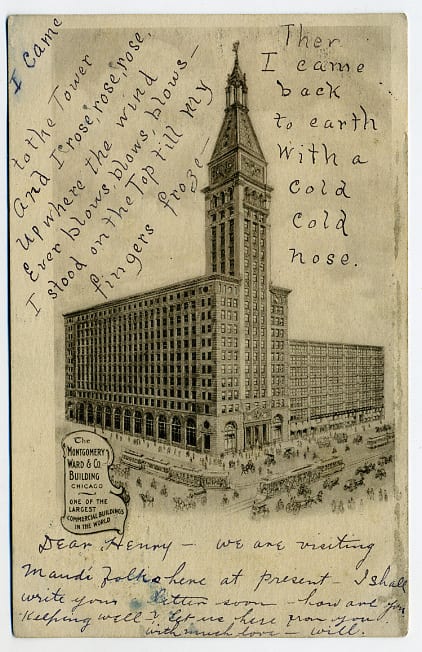 I came
to the Tower
And I rose, rose, rose,
Up where the wind
Ever blows, blows, blows-
I stood on the Top till my
fingers froze-
Ther
I came
back
to earth
With a
cold
cold
nose.
The
MONTGOMERY
WARD & CO.
BUILDING
CHICAGO
ONE OF THE
LARGEST
COMMERCIAL BUILDINGS
IN THE WORLD
Dear Henry - we are visiting
Maudi folks here at present - I shall
write you a letter soon - how are you
Keeping well? let us here from you
with much love - will.